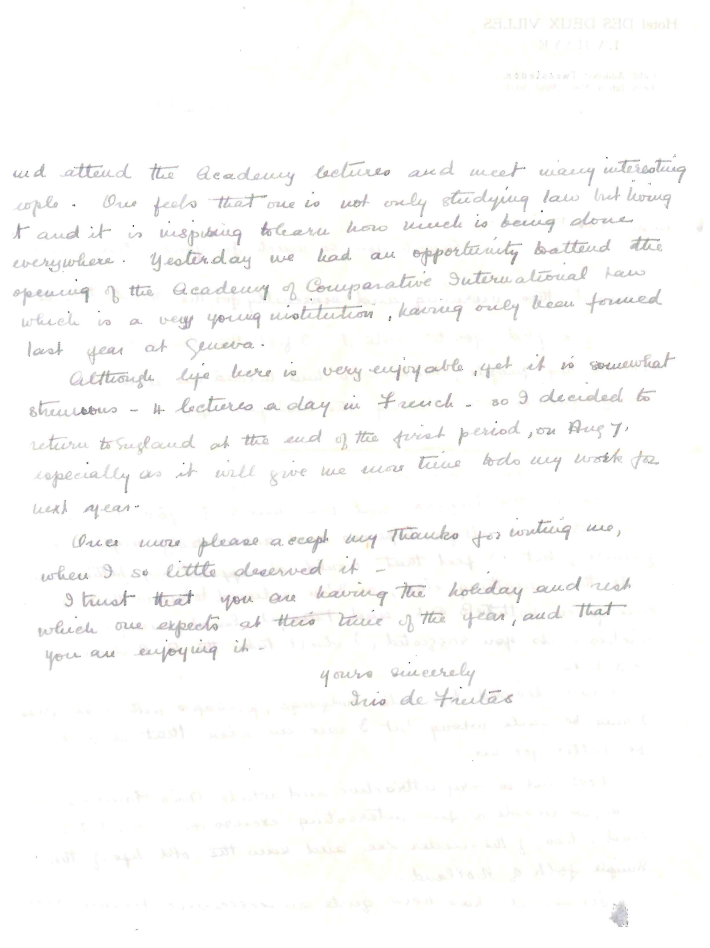 and attend the Academy lectures and meet many interesting
eople. One feels that one is not only studying law but living
t and it is inspiring to learn how much is being done
everywhere. Yesterday we had an opportunity to attend the
opening of the Academy of Comparative International Law
which is a very young institution, having only been formed
last year at Geneva.
Although life here is very enjoyable, yet it is somewhat
strenuous - 4 lectures a day in French - so I decided to
return to England at the end of the first period, on Aug 7,
especially as it will give me more time to do my work for
next year.
Once more please accept my thanks for writing me,
when I so little deserved it -
I trust that you are having the holiday and rest
which one expects at this time of the year, and that
you are enjoying it -
Yours sincerely
Iris de Freitas
Hotel DES DEUX VILLES